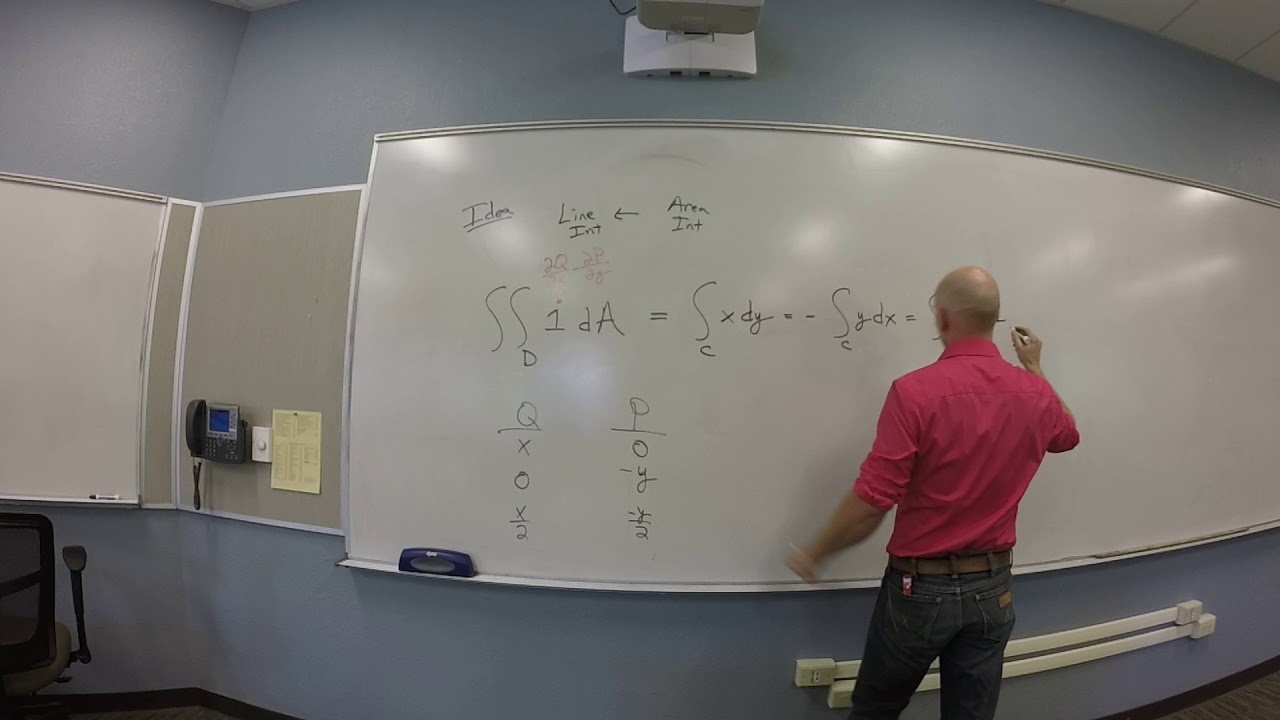 Idea Line Int ← Area Int
∂Q/∂x - ∂P/∂y
∬_D 1 dA = ∫_C x dy = - ∫_C y dx =
Q P
x 0
0 -y
x/2 -y/2